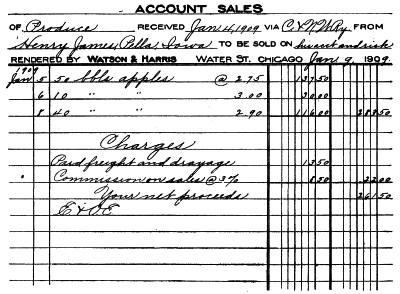 ACCOUNT SALES
OF Produce RECEIVED Jan 4, 1909 VIA C&NWRy FROM
Henry James, Pella, Iowa TO BE SOLD ON his acct and risk
RENDERED BY WATSON & HARRIS WATER ST. CHICAGO Jan 9, 1909.
1909
Jan 5 50 bbls apples @ 2.75 137 50
6 10 " " 3.00 30 00
8 40 " " 2.90 116 00 283 50
Charges
Paid freight and drayage 13 50
Commission on sales @ 3% 8 50 22 00
Your net proceeds 261 50
E & O E